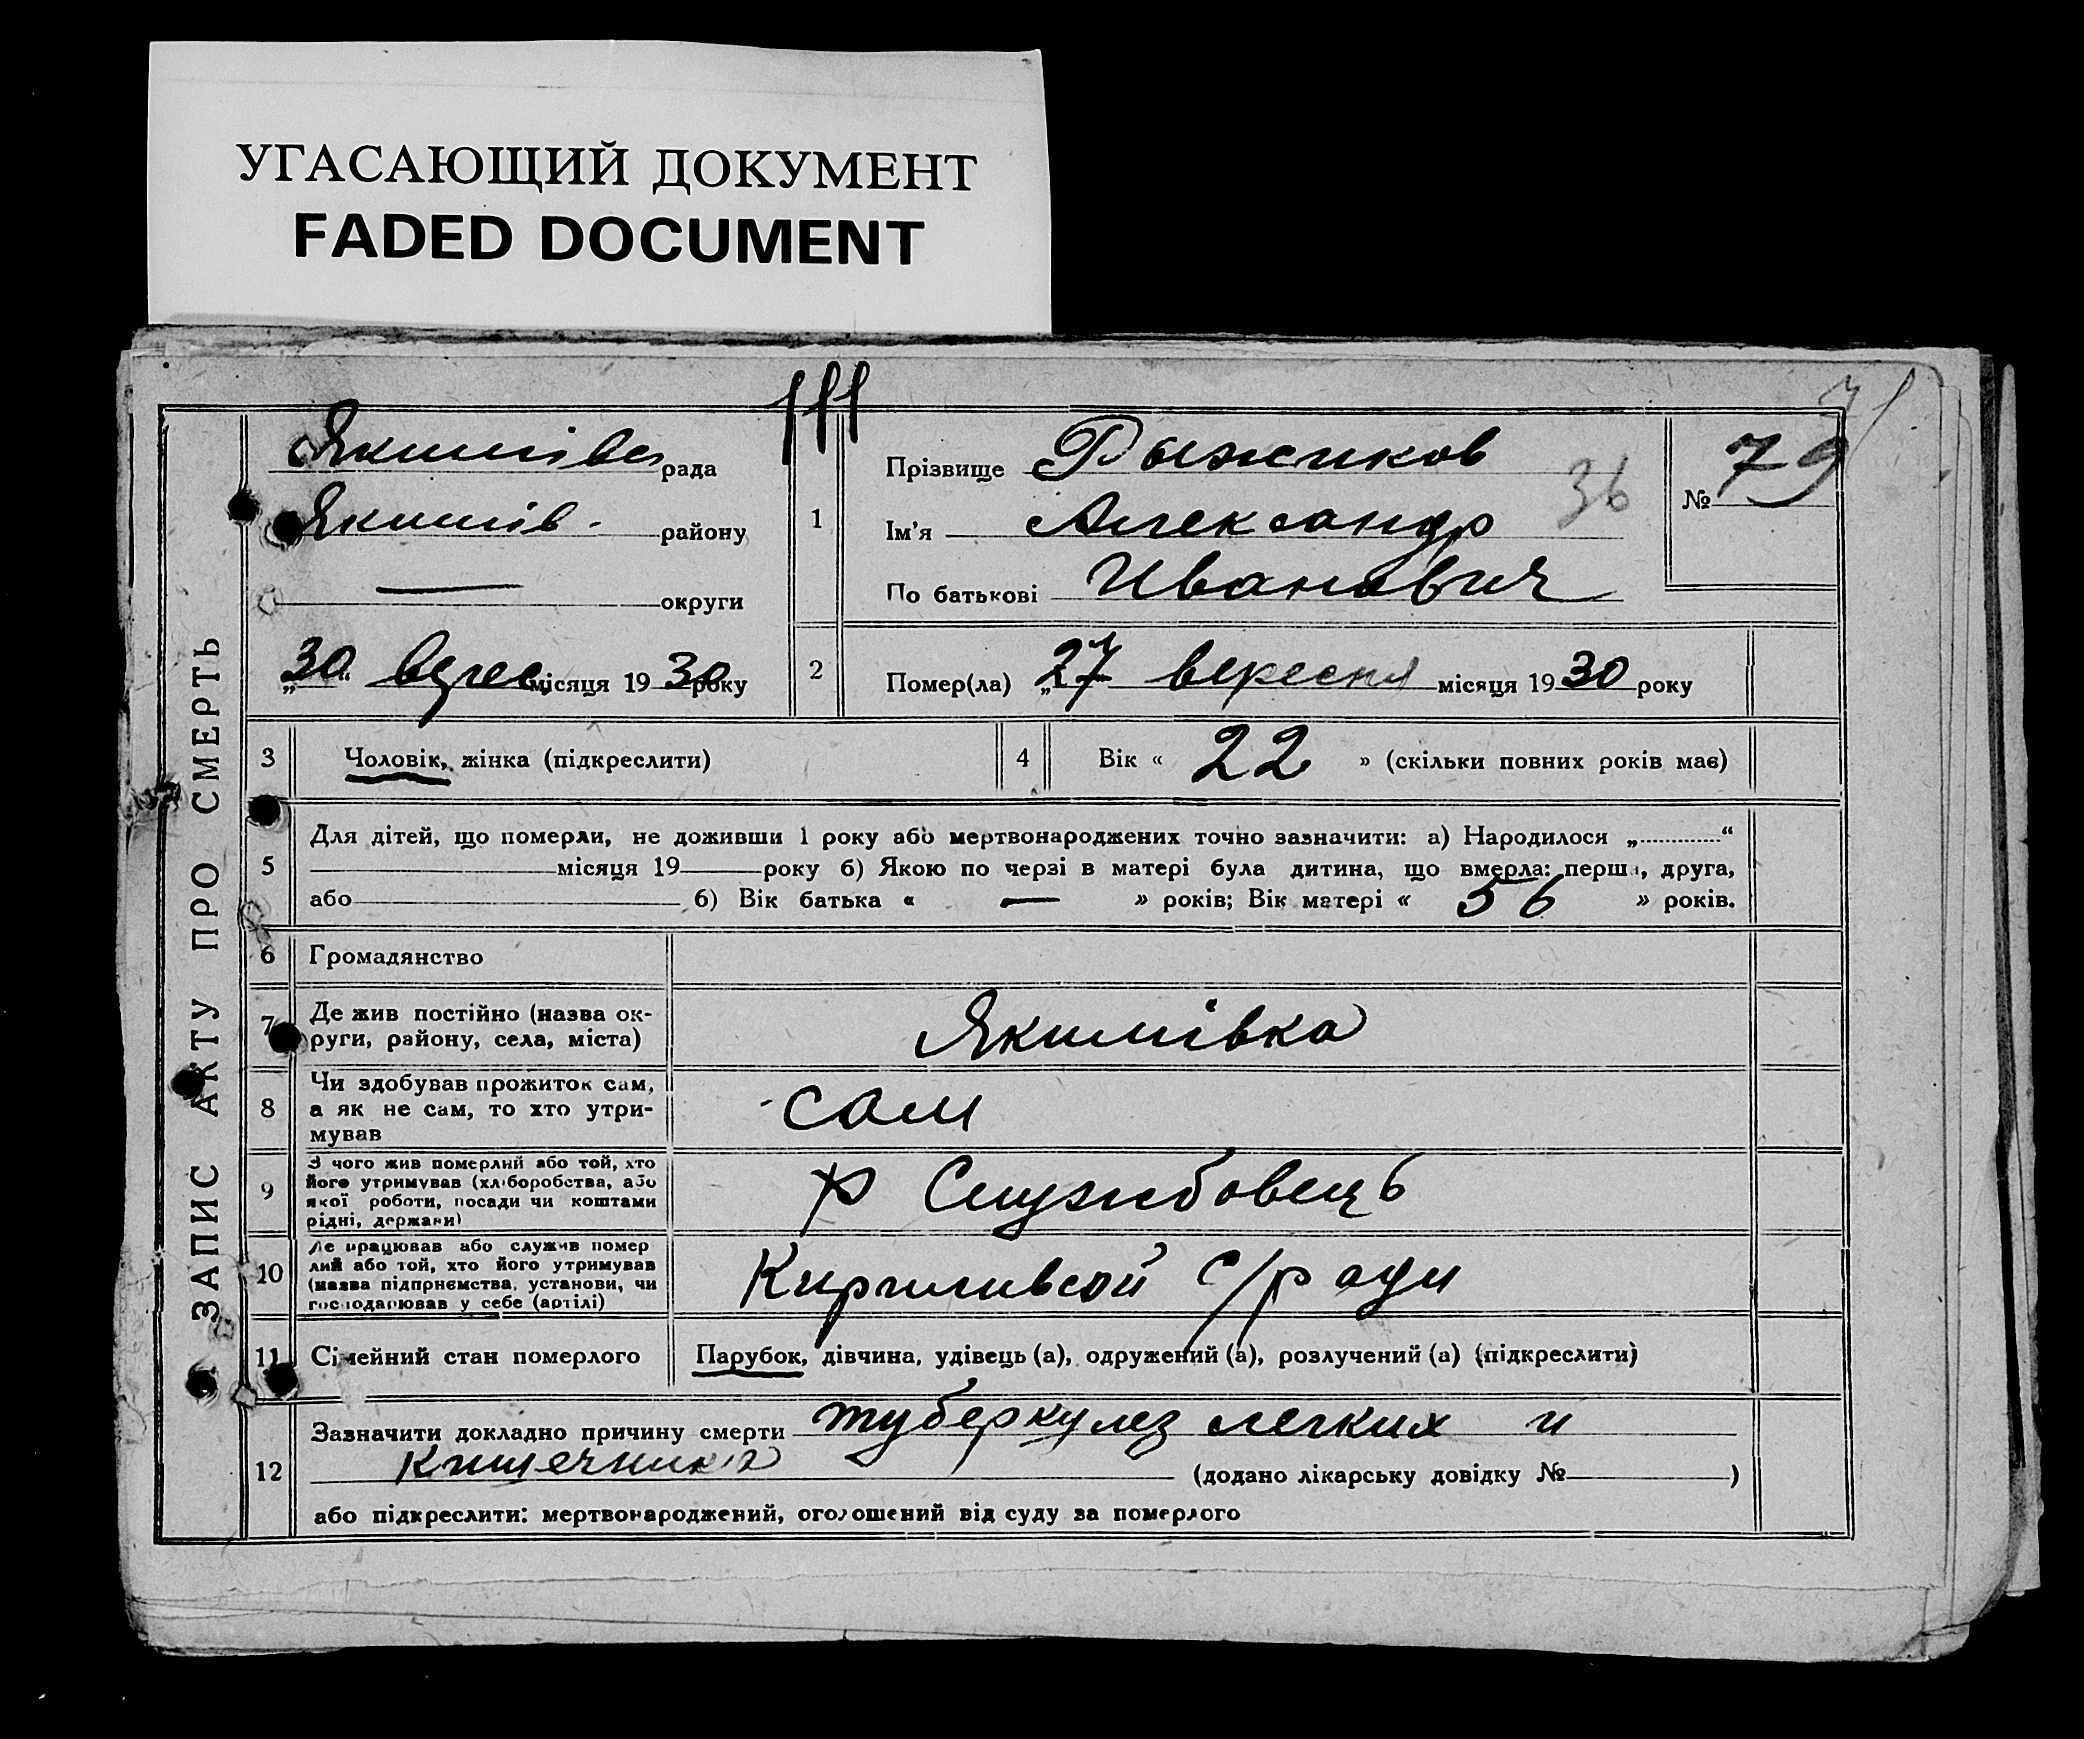 УГАСАЮЩИЙ ДОКУМЕНТ
FADED DOCUMENT
ЗАПИС АКТУ ПРО СМЕРТЬ
Якимівс рада
Якимів. району
— округи
„30“ верес місяця 1930 року
1
Прізвище Рыжиков
Ім'я Александр
По батькові Иванович
36
№ 79
2
Помер(ла) „27 вересня місяця 1930 року
3 Чоловік, жінка (підкреслити)
4 Вік « 22 » (скільки повних років має)
5
Для дітей, що померли, не доживши 1 року або мертвонароджених точно зазначити: а) Народилося „ “
місяця 19 року б) Якою по черзі в матері була дитина, що вмерла: перша, друга,
або б) Вік батька « — » років; Вік матері « 56 » років.
6 Громадянство
7
Де жив постійно (назва ок-
руги, району, села, міста)
Якимівка
8
Чи здобував прожиток сам,
а як не сам, то хто утри-
мував
сам
9
З чого жив померлий або той, хто
його утримував (хліборобства, або
якої роботи, посади чи коштами
рідні, держави)
Службовець
10
Де працював або служив помер
лий або той, хто його утримував
(назва підприємства, установи, чи
господарював у себе (артілі)
Кириливсой с/ради
11 Сімейний стан померлого
Парубок, дівчина, удівець (а), одружений (а), розлучений (а) (підкреслити)
12
Зазначити докладно причину смерти туберкулез легких и
кишечника (додано лікарську довідку № )
або підкреслити: мертвонароджений, оголошений від суду за померлого